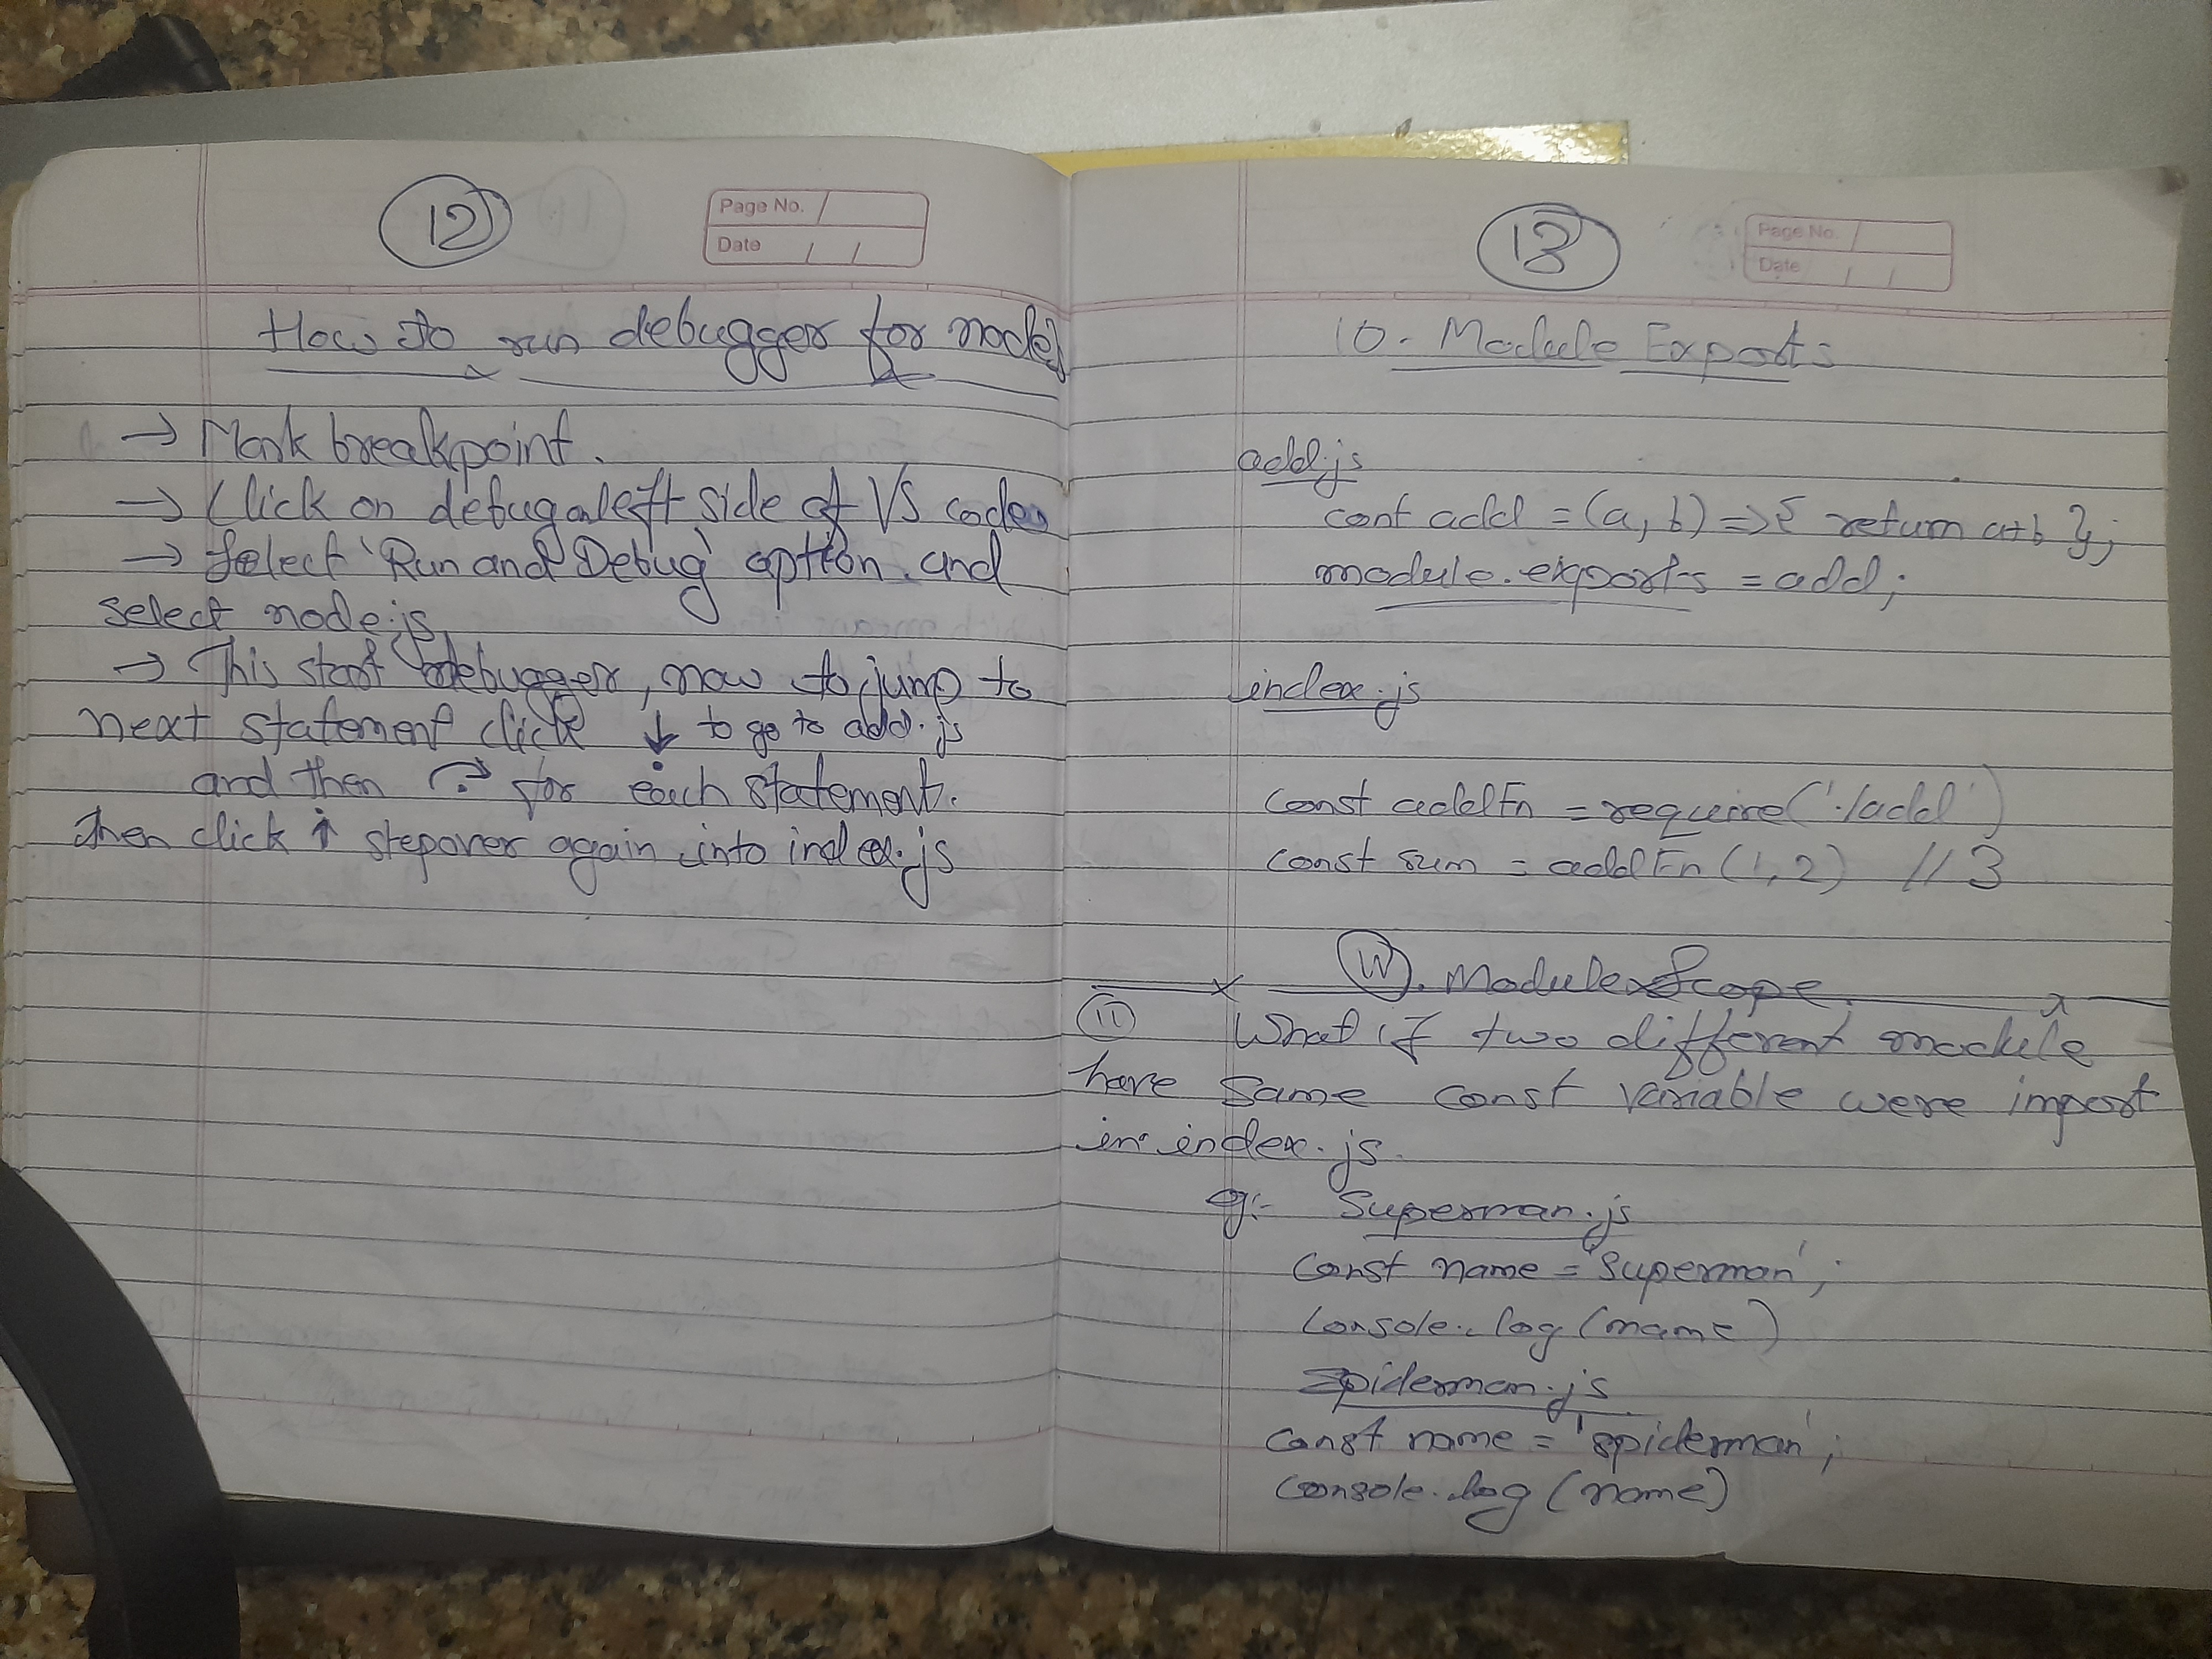 12
Page No.
Date / /
How to run debugger for nodejs
→ Mark breakpoint.
→ Click on debug on left side of VS code
→ Select 'Run and Debug' option and
select node.js
→ This start debugger, now to jump to
next statement click ↓ to go to add.js
and then for each statement.
then click ↑ stepover again into index.js
13
Page No.
Date / /
10. Module Exports
add.js
cont add = (a, b) => { return a+b };
module.exports = add;
index.js
const addFn = require('./add')
const sum = addFn (1, 2) // 3
Module Scope.
11 What if two different module
have same const variable were import
in index.js.
eg:- Superman.js
const name = 'Superman';
console.log (name)
Spiderman.js
const name = 'spiderman';
console.log (name)